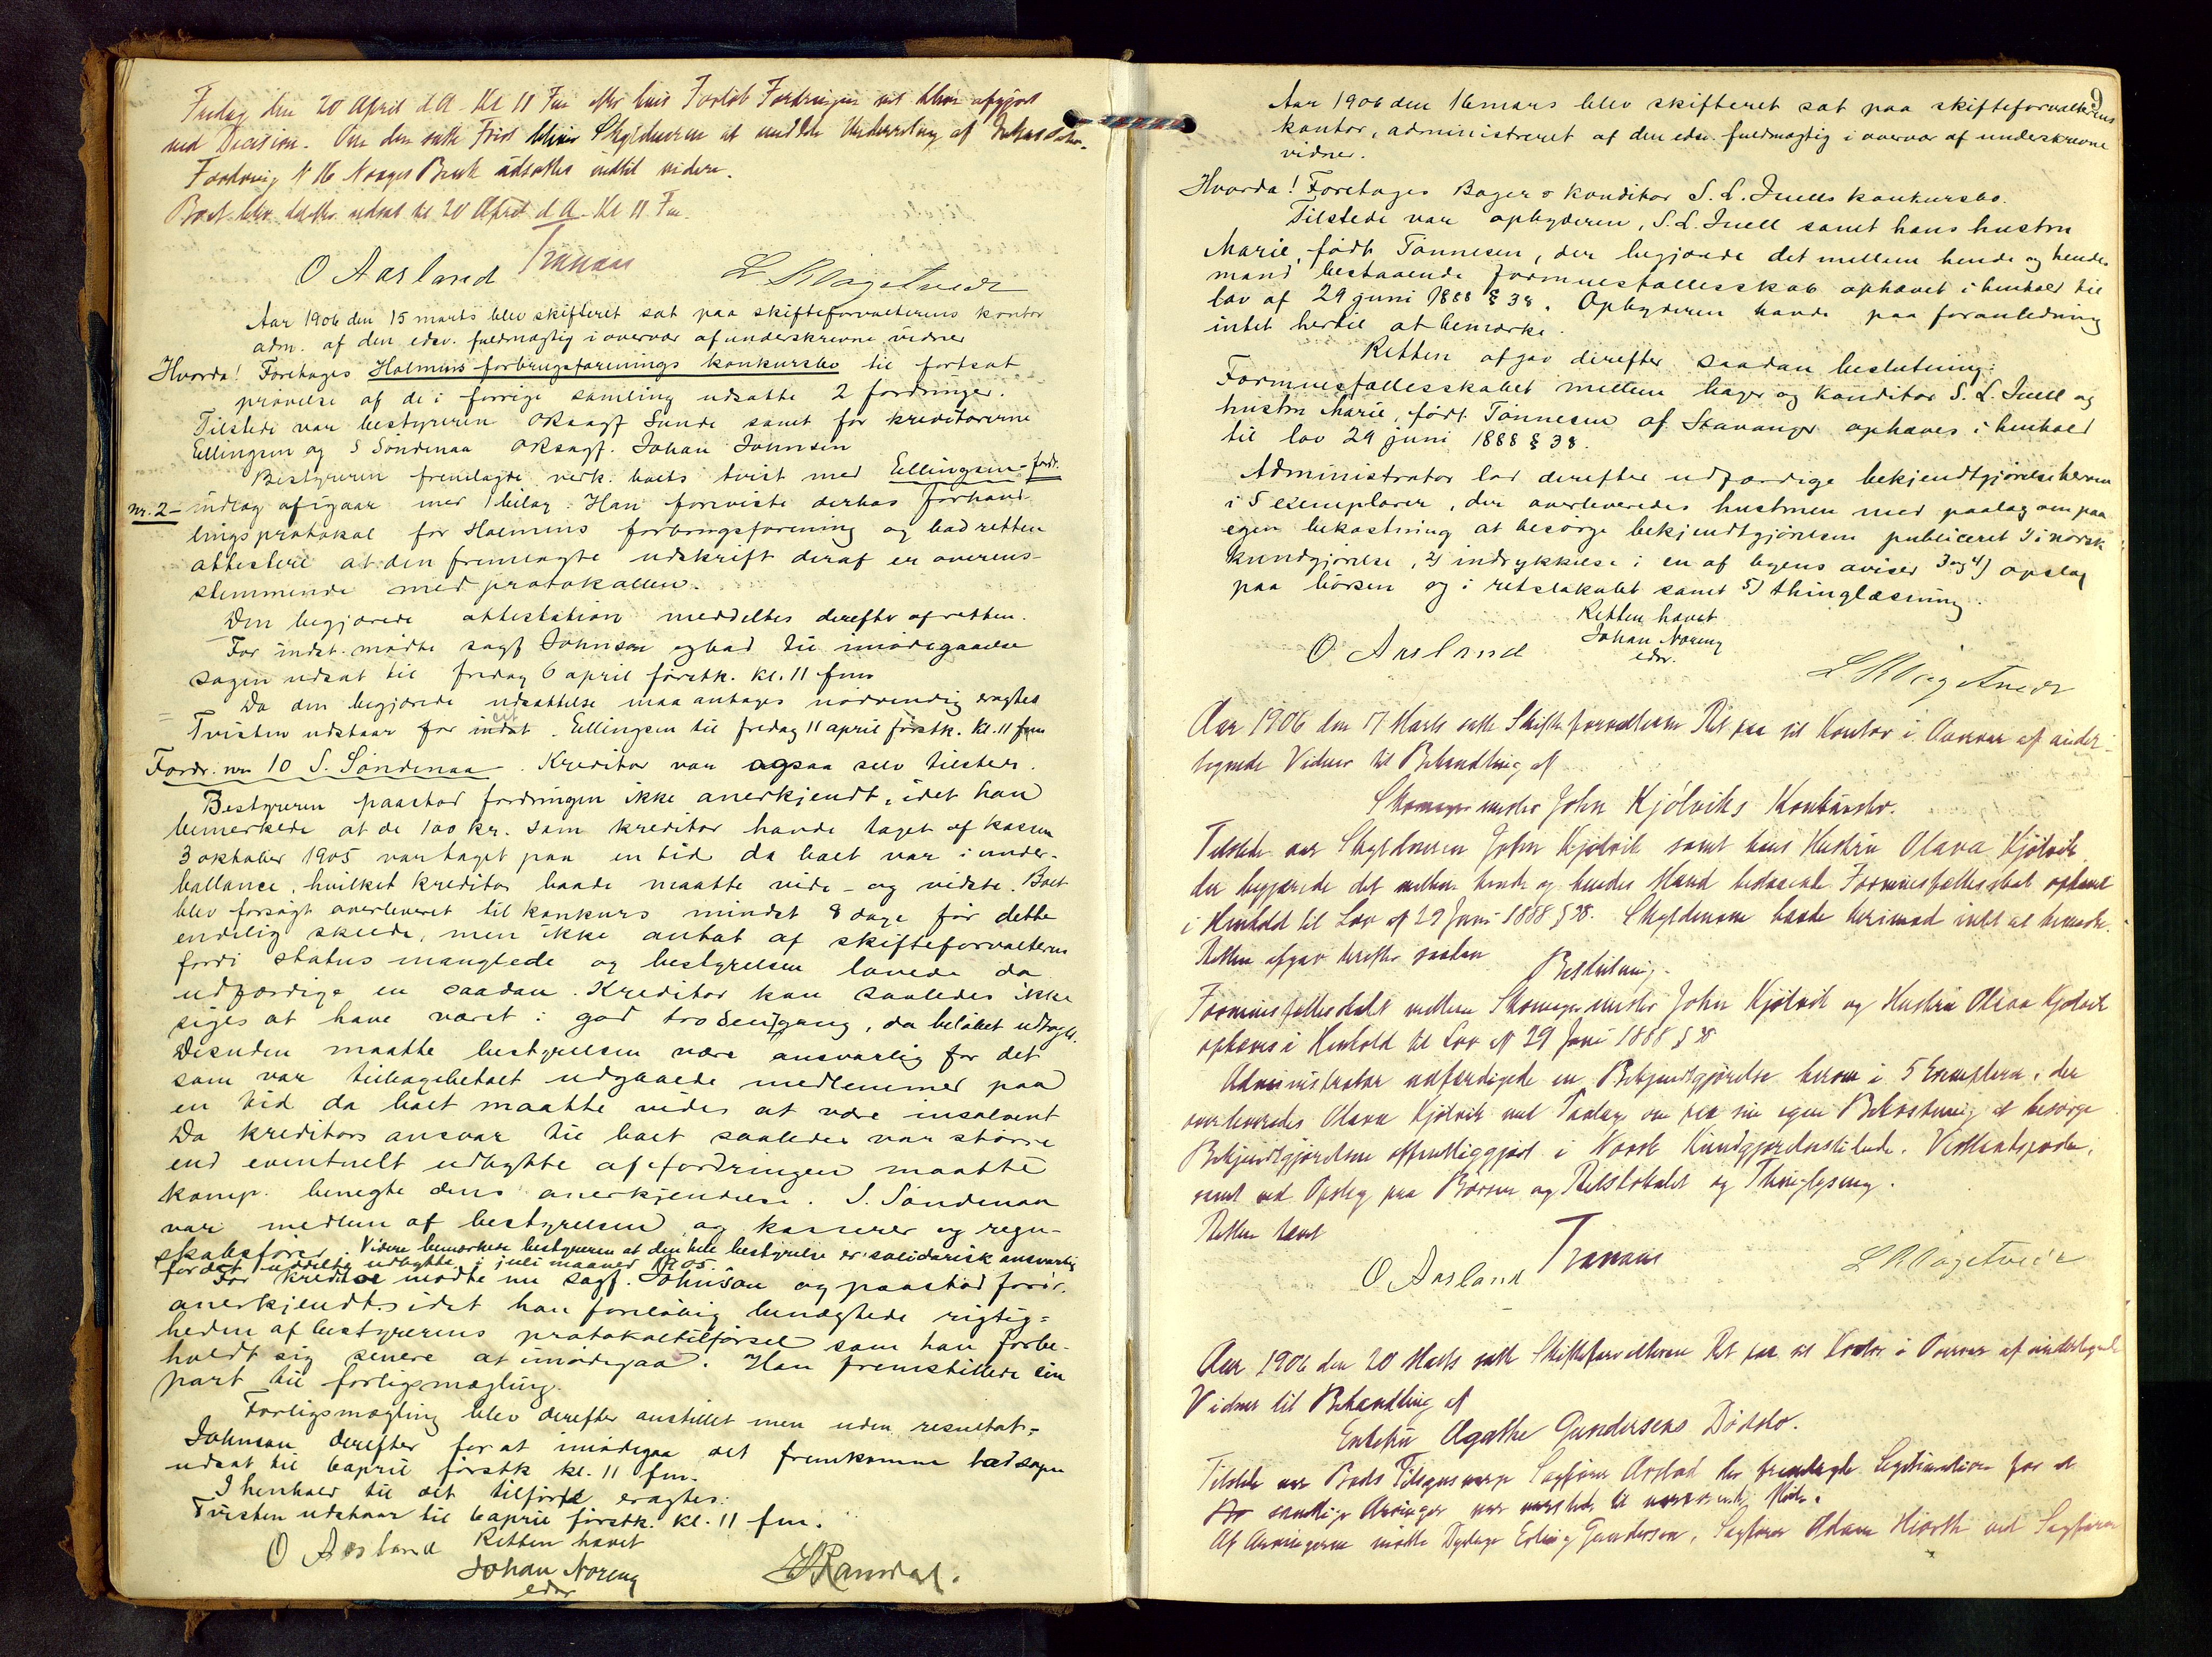 Fredag den 20 April d.A. Kl 11 Fm efter hvis Forløb Fordringen vil blive afgjort
ved Decision. Om den satte Frist bliver Skyldneren at meddele Underretning af
Fordring N 16 Norges Bank udsattes indtil videre.
Boet blev derefter udsat til 20 April d.A. Kl 11 Fm.
O Aarsland Tranaas L R Vagetveit
Aar 1906 den 15 marts blev skifteret sat paa skifteforvalterens kontor
adm. af den edsv. fuldmægtig i overvær af underskrevne vidner
Hvorda! Foretages Holmens forbrugsforenings konkursbo til fortsat
prøvelse af de i forrige samling udsatte 2 fordringer.
Tilstede var bestyreren oksagf Sunde samt for kreditorerne
Ellingsen og S Søndenaa oksagf. Johan Johnsen
Bestyreren fremlagte vedk. boets tvist med Ellingsen - fordr.
nr. 2 - indlæg af igaar med 1 bilag. Han foreviste derhos forhand-
lingsprotokol for Holmens forbrugsforening og bad retten
attestere at den fremlagte udskrift deraf er overens-
stemmende med protokollen.
Den begjærede attestation meddeltes derefter af retten.
For indst. mødte sagf Johnsen og bad til imødegaaelse
sagen udsat til fredag 6 april førstk. kl. 11 fm
Da den begjærede udsættelse maa antages nødvendig eragtes
Tvisten udstaar for indst. Ellingsen til fredag 11 april førstk. kl. 11 fm
Fordr. nr 10 S. Søndenaa. Kreditor var ogsaa selv tilstede.
Bestyreren paastod fordringen ikke anerkjendt, idet han
bemerkede at de 100 kr. som kreditor havde taget af kassen
3 oktober 1905 var taget paa en tid da boet var i under-
ballance, hvilket kreditor baade maatte vide - og vidste. Boet
blev forsøgt overleveret til konkurs mindst 8 dage før dette
endelig skede, men ikke antat af skifteforvalteren
fordi status manglede og bestyrelsen lovede da
udfærdige en saadan. Kreditor kan saaledes ikke
siges at have været i god tro sengang, da beløbet udtoges.
Desuden maatte bestyrelsen være ansvarlig for det
som var tilbagebetalt udgaaede medlemmer paa
en tid da boet maatte vides at være insolvent
Da kreditors ansvar til boet saaledes var større
end eventuelt udbytte af fordringen maatte
komp. benegte dens anerkjendelse. S. Søndenaa
var medlem af bestyrelsen og kasserer og regn-
skabsfører. Videre bemærkede bestyreren at den hele bestyrelse er solidarisk ansvarlig
for det uddelte udbytte i juli maaned 1905.
For kreditor mødte nu sagf. Johnsen og paastod fordr.
anerkjendt idet han foreløbig benægtede rigtig-
heden af bestyrerens protokoltilførsel som han forbe-
holdt sig senere at imødegaa. Han fremstillede sin
part til forligsmægling.
Forligsmægling blev derefter anstillet men uden resultat.
Johnsen derefter for at imødegaa det fremkomne bad sagen
udsat til 6 april førstk kl. 11 fm.
I henhold til det tilførte eragtes:
Tvisten udstaar til 6 april førstk. kl. 11 fm.
O Aarsland Retten hævet
Johan Noreng
edsv
H Ramdal.
9
Aar 1906 den 16 mars blev skifteret sat paa skifteforvalterens
kontor, administreret af den edsv. fuldmægtig i overvær af underskrevne
vidner.
Hvorda! Foretages Bager & konditor S. L. Juells konkursbo.
Tilstede var opbyderen, S. L. Juell samt hans hustru
Marie, født Tønnesen, der begjærede det mellem hende og hendes
mand bestaaende formuesfællesskab ophævet i henhold til
lov af 29 juni 1888 § 38. Opbyderen havde paa foranledning
intet hertil at bemærke.
Retten afgav derefter saadan beslutning:
Formuesfællesskabet mellem bager og konditor S. L. Juell og
hustru Marie, født Tønnesen af Stavanger ophæves i henhold
til lov 29 juni 1888 § 38.
Administrator lod derefter udfærdige bekjendtgjørelse herom
i 5 exemplarer, der overleveredes hustruen med paalæg om paa
egen bekostning at besørge bekjendtgjørelsen publiceret 1) i norsk
kundgjørelse, 2) indrykkelse i en af byens aviser 3 og 4) opslag
paa børsen og i retslokalet samt 5) thinglæsning.
Retten hævet
Johan Noreng
edsv.
O Aarsland
L R Vagetveit
Aar 1906 den 17 Marts satte Skifteforvalteren Ret paa sit Kontor i Overvær af under-
tegnede Vidner til Behandling af
Skomagermester John Kjølviks Konkursbo.
Tilstede var Skyldneren John Kjølvik samt hans Hustru Olava Kjølvik
der begjærede det mellem hende og hendes Mand bestaaende Formuesfællesskab ophævet
i Henhold til Lov af 29 Juni 1888 § 38. Skyldneren havde herimod intet at bemærke.
Retten afgav derefter saadan
Beslutning.
Formuesfællesskabet mellem Skomagermester John Kjølvik og Hustru Olava Kjølvik
ophæves i Henhold til Lov af 29 Juni 1888 § 38
Administrator udfærdigede en Bekjendtgjørelse herom i 5 Exemplarer, der
overleveredes Olava Kjølvik med Paalæg om paa sin egen Bekostning at besørge
Bekjendtgjørelsen offentliggjort i Norsk Kundgjørelsestidende, Vestlandsposten,
samt ved Opslag paa Børsen og Retslokalet og Thinglysning.
Retten hævet
Tranaas
O Aarsland
L R Vagetveit
Aar 1906 den 20 Marts satte Skifteforvalteren Ret paa sit Kontor i Overvær af undertegnede
Vidner til Behandling af
Enkefru Agathe Gundersens Dødsbo.
Tilstede var Boets Sagfører Arstad der fremlagde Legitimation for at
samtlige Arvinger var varslede til nærværende Møde.
Af Arvingerne mødte Erling Gundersen, Sagfører Adam Hiorth ved Sagfører